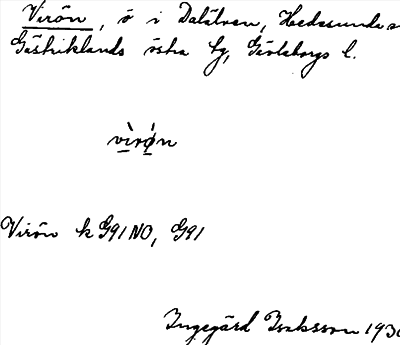 Virön, ö i Dalälven, Hedesunda s
Gästriklands östra tg, Gävleborgs l.
vìrø̀n
Virön k G91NO, G91
Ingegärd Isaksson 193